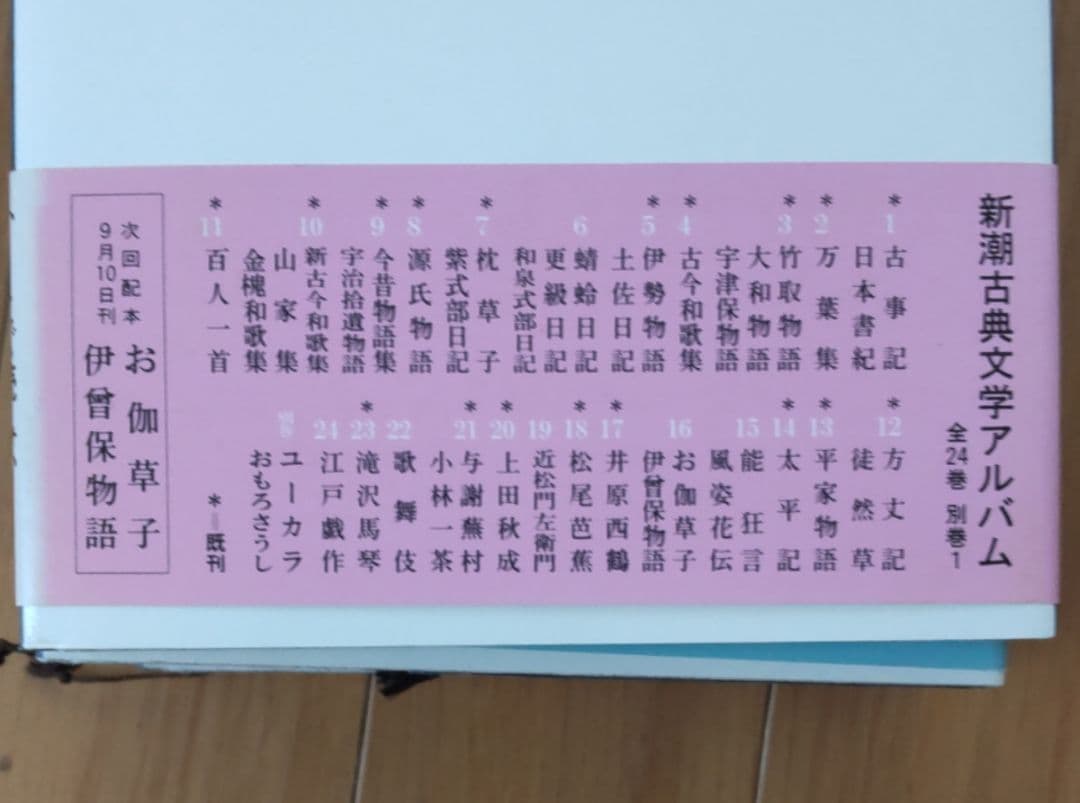 新潮古典文学アルバム
全24巻 別巻1
*1 古事記
日本書紀
*2 万葉集
*3 竹取物語
大和物語
宇津保物語
*4 古今和歌集
*5 伊勢物語
土佐日記
6 蜻蛉日記
更級日記
和泉式部日記
*7 枕草子
紫式部日記
*8 源氏物語
*9 今昔物語集
宇治拾遺物語
*10 新古今和歌集
山家集
金槐和歌集
*11 百人一首
*12 方丈記
徒然草
*13 平家物語
*14 太平記
15 能狂言
風姿花伝
16 お伽草子
伊曾保物語
*17 井原西鶴
*18 松尾芭蕉
19 近松門左衛門
*20 上田秋成
*21 与謝蕪村
小林一茶
22 歌舞伎
*23 滝沢馬琴
24 江戸戯作
別巻 ユーカラ
おもろさうし
*=既刊
次回配本
9月10日刊
お伽草子
伊曾保物語